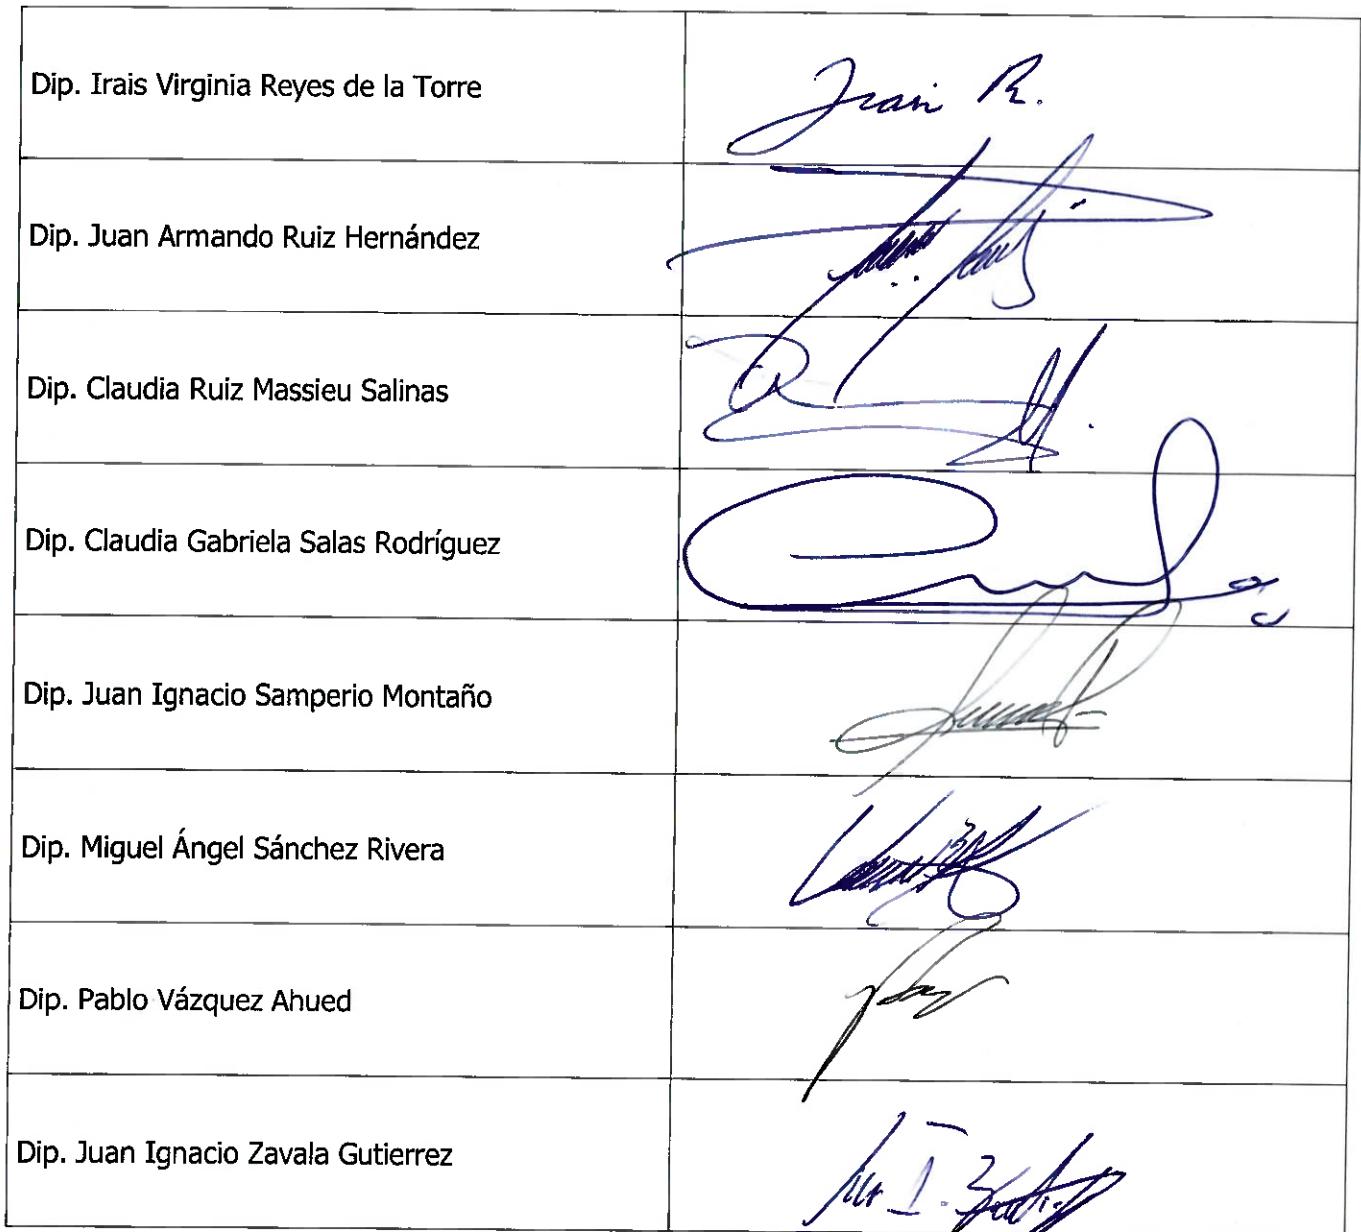 Dip. Irais Virginia Reyes de la Torre
Irais R.
Dip. Juan Armando Ruiz Hernández
Dip. Claudia Ruiz Massieu Salinas
Dip. Claudia Gabriela Salas Rodríguez
Dip. Juan Ignacio Samperio Montaño
Dip. Miguel Ángel Sánchez Rivera
Dip. Pablo Vázquez Ahued
Dip. Juan Ignacio Zavala Gutierrez